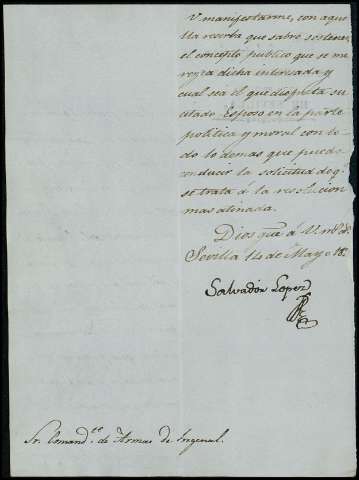 V. manifestarme, con aque
lla reserba que sabrá sostener,
el concepto público que se me
rezca dicha interesada y
cual sea el que disfruta su
citado Esposo en la parte
politica y moral con to
do lo demas que pueda
conducir la solicitud de q.
se trata á la resolucion
mas atinada.
Dios gue. á V. ms. as.
Sevilla 14 de Mayo
Salvador Lopez
Sr. Comand.te de Armas de